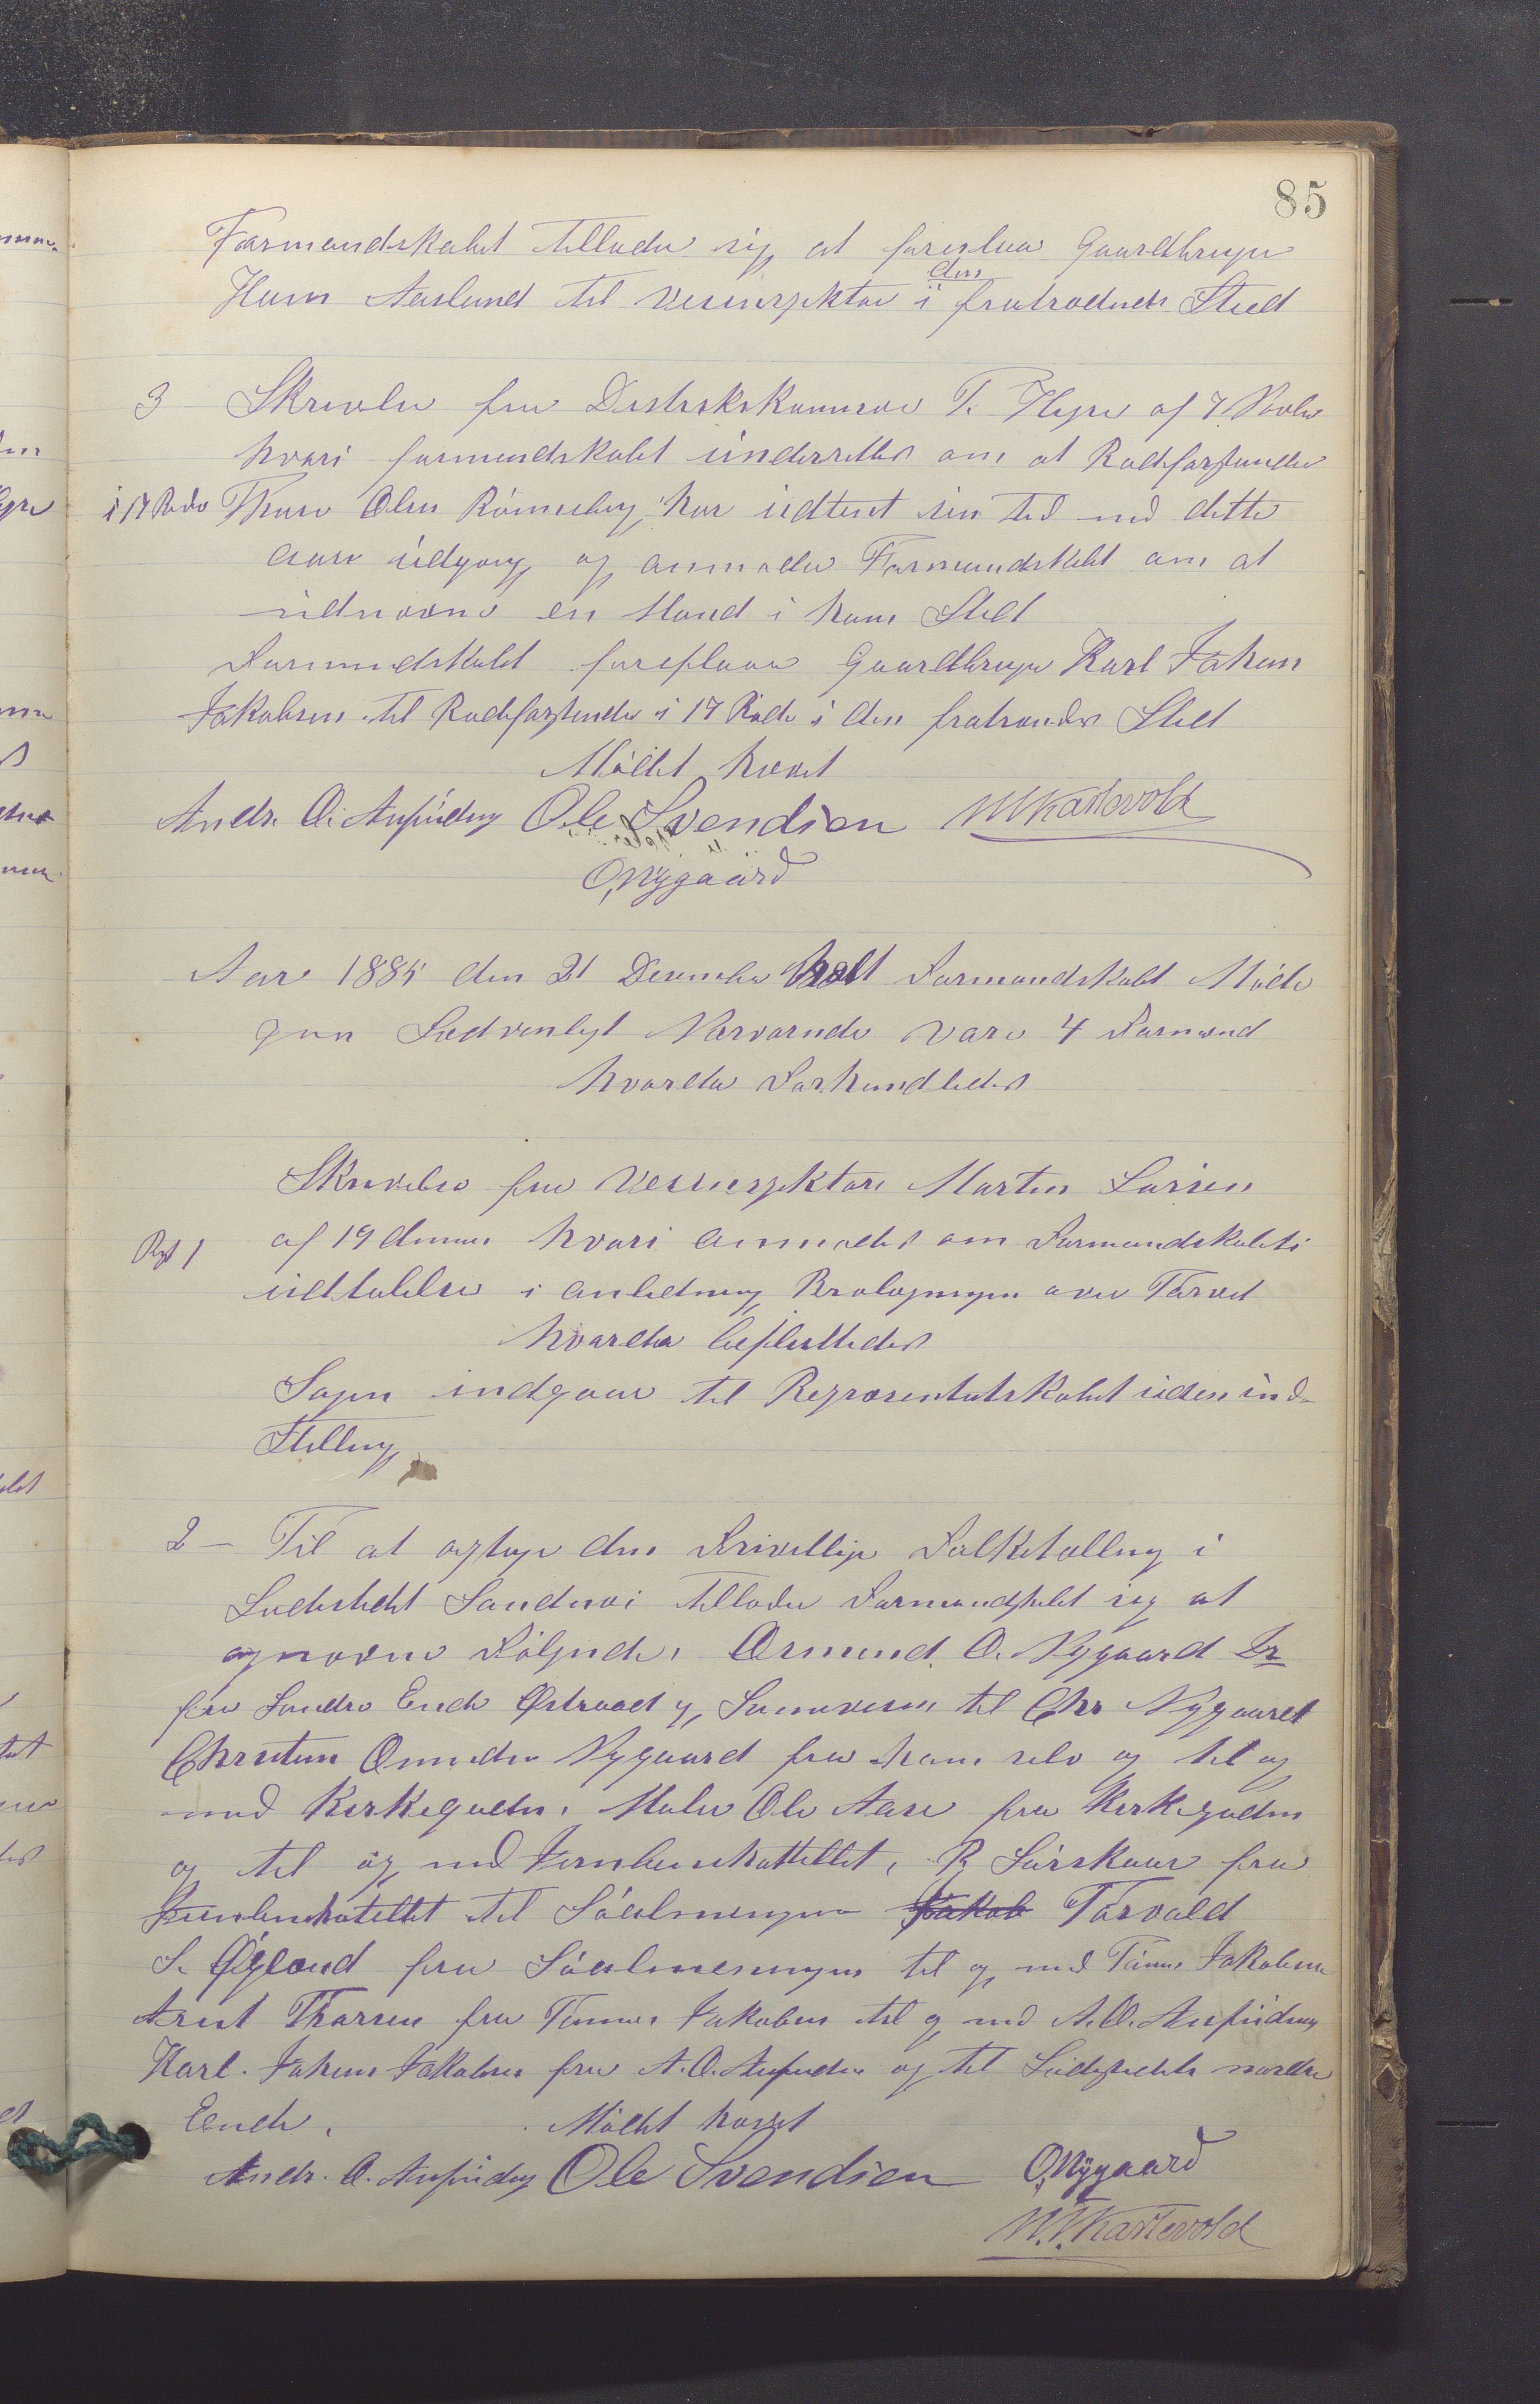 85
Formandskabet tillader sig at foreslaa Gaardbruger
Hans Aaslund til Veiinspektør i den fratrædende Sted
3 Skrivelse fra Distrikskommisær T. Heyre af 7 Novbr
hvori formandskabet underrettes om at Rodeforstander
i 17 Rode Thore Olsen Rømseberg, har udtient sin tid med dette
aars udgang og anmoder Formandskabet om at
udnævne en Mand i hans Sted
Formandskabet foreslaar Gaardbruger Karl Johan
Jakobsen til Rodeforstander i 17 Rode i den fratrændes Sted
Mødet hævet
Andr. O. Aufinsdsen Ole Svendsen
O, Nygaard
Aar 1885 den 21 Desember holdt Formandskabet Møde
paa Sædvanligt Nærværende vare 4 Formænd
hvorda Forhandledes
Skrivelse fra Veiinspektør Martin Larsen
1 af 19 dennes hvori anmodes om Formandskabets
udtalelse i anledning Brolægningen over Torvet
hvorda besluttedes
Sagen indgaar til Repræsentatskabet uden ind-
stilling
2 - Til at optage den Frivillige Folketælling i
Ladestedet Sandnæs tillader Formandskabet sig at
opnævne Følgende, Osmund O. Nygaard Jr
fra Søndre Ende Østraadt og Sannesveien til Chr Nygaard
Christian Osmundsen Nygaard fra ham selv og til og
med Kirkegaden, Maler Ole Aase fra Kirkegaden
og til og med Jernbanehotellet, R Sørskaar fra
Jernbanehotellet til Søalmeningen Jakob Torvald
S. Øgland fra Søalmeningen til og med Tønnes Jakobsen
Arnt Thorsen fra Tønnes Jakobsen til og med A. O. Aufindsen
Karl Johan Jakobsen fra A. O. Aufindsen og til Ladestedets nordre
Ende. Mødet hævet
Andr. O. Aufindsen Ole Svendsen O, Nygaard